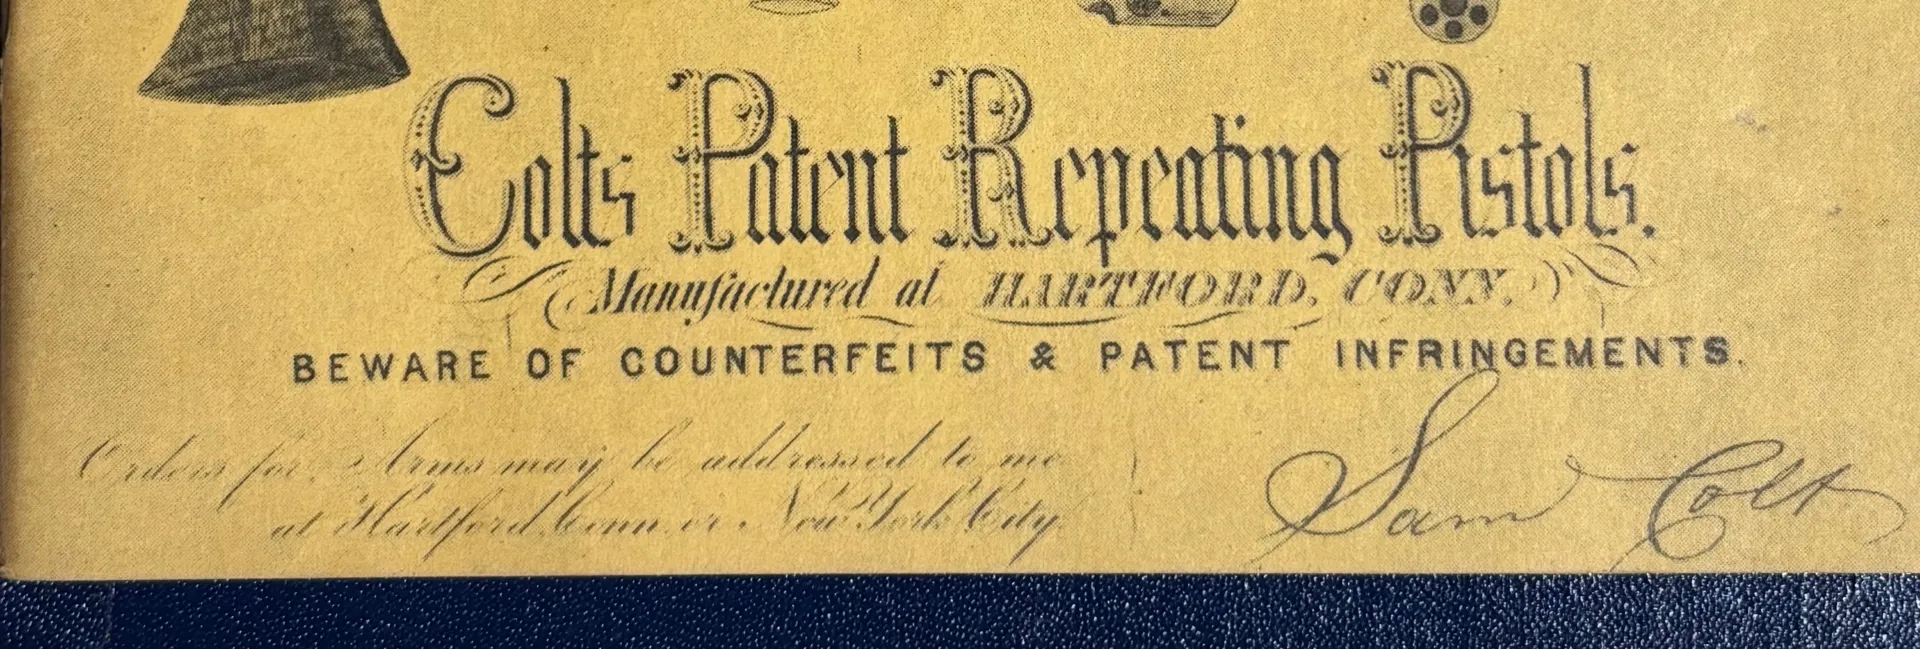 Colts Patent Repeating Pistols.
Manufactured at HARTFORD, CONN.
BEWARE OF COUNTERFEITS & PATENT INFRINGEMENTS.
Orders for Arms may be addressed to me
at Hartford, Conn. or New York City.
Sam Colt